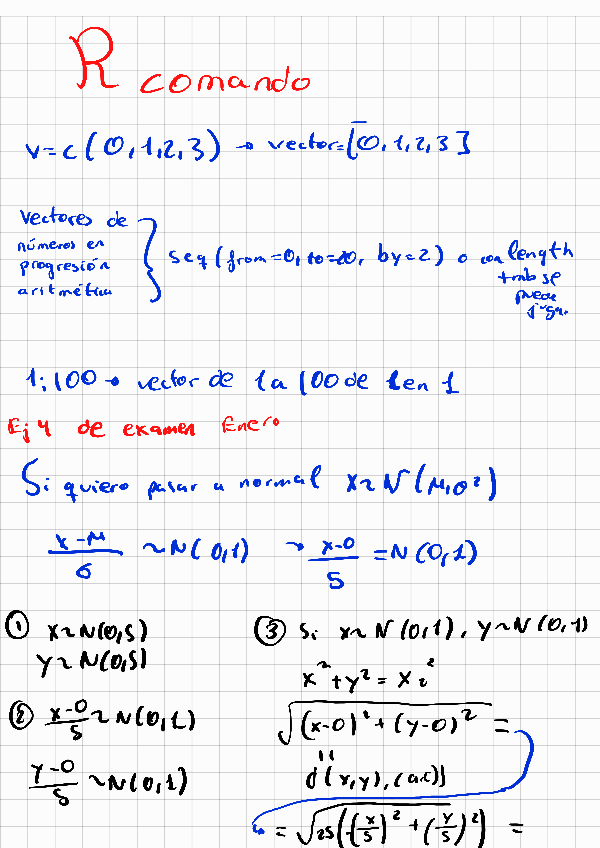 R comando
v=c(0,1,2,3) → vector=[0,1,2,3]
vectores de
números en
progresión
aritmética
seq(from=0, to=20, by=2) o con length
tmb se
puede
jugar
1:100 → vector de 1 a 100 de 1 en 1
Ej 4 de examen Enero
Si quiero pasar a normal x~N(μ,σ²)
x-μ/σ ~N(0,1) → x-0/5 =N(0,1)
① x~N(0,5)
y~N(0,5)
② x-0/5 ~N(0,1)
y-0/5 ~N(0,1)
③ Si x~N(0,1), y~N(0,1)
x²+y² = X₂²
√(x-0)²+(y-0)² =
"
d((x,y),(0,0))
= √25((x/5)²+(y/5)²) =